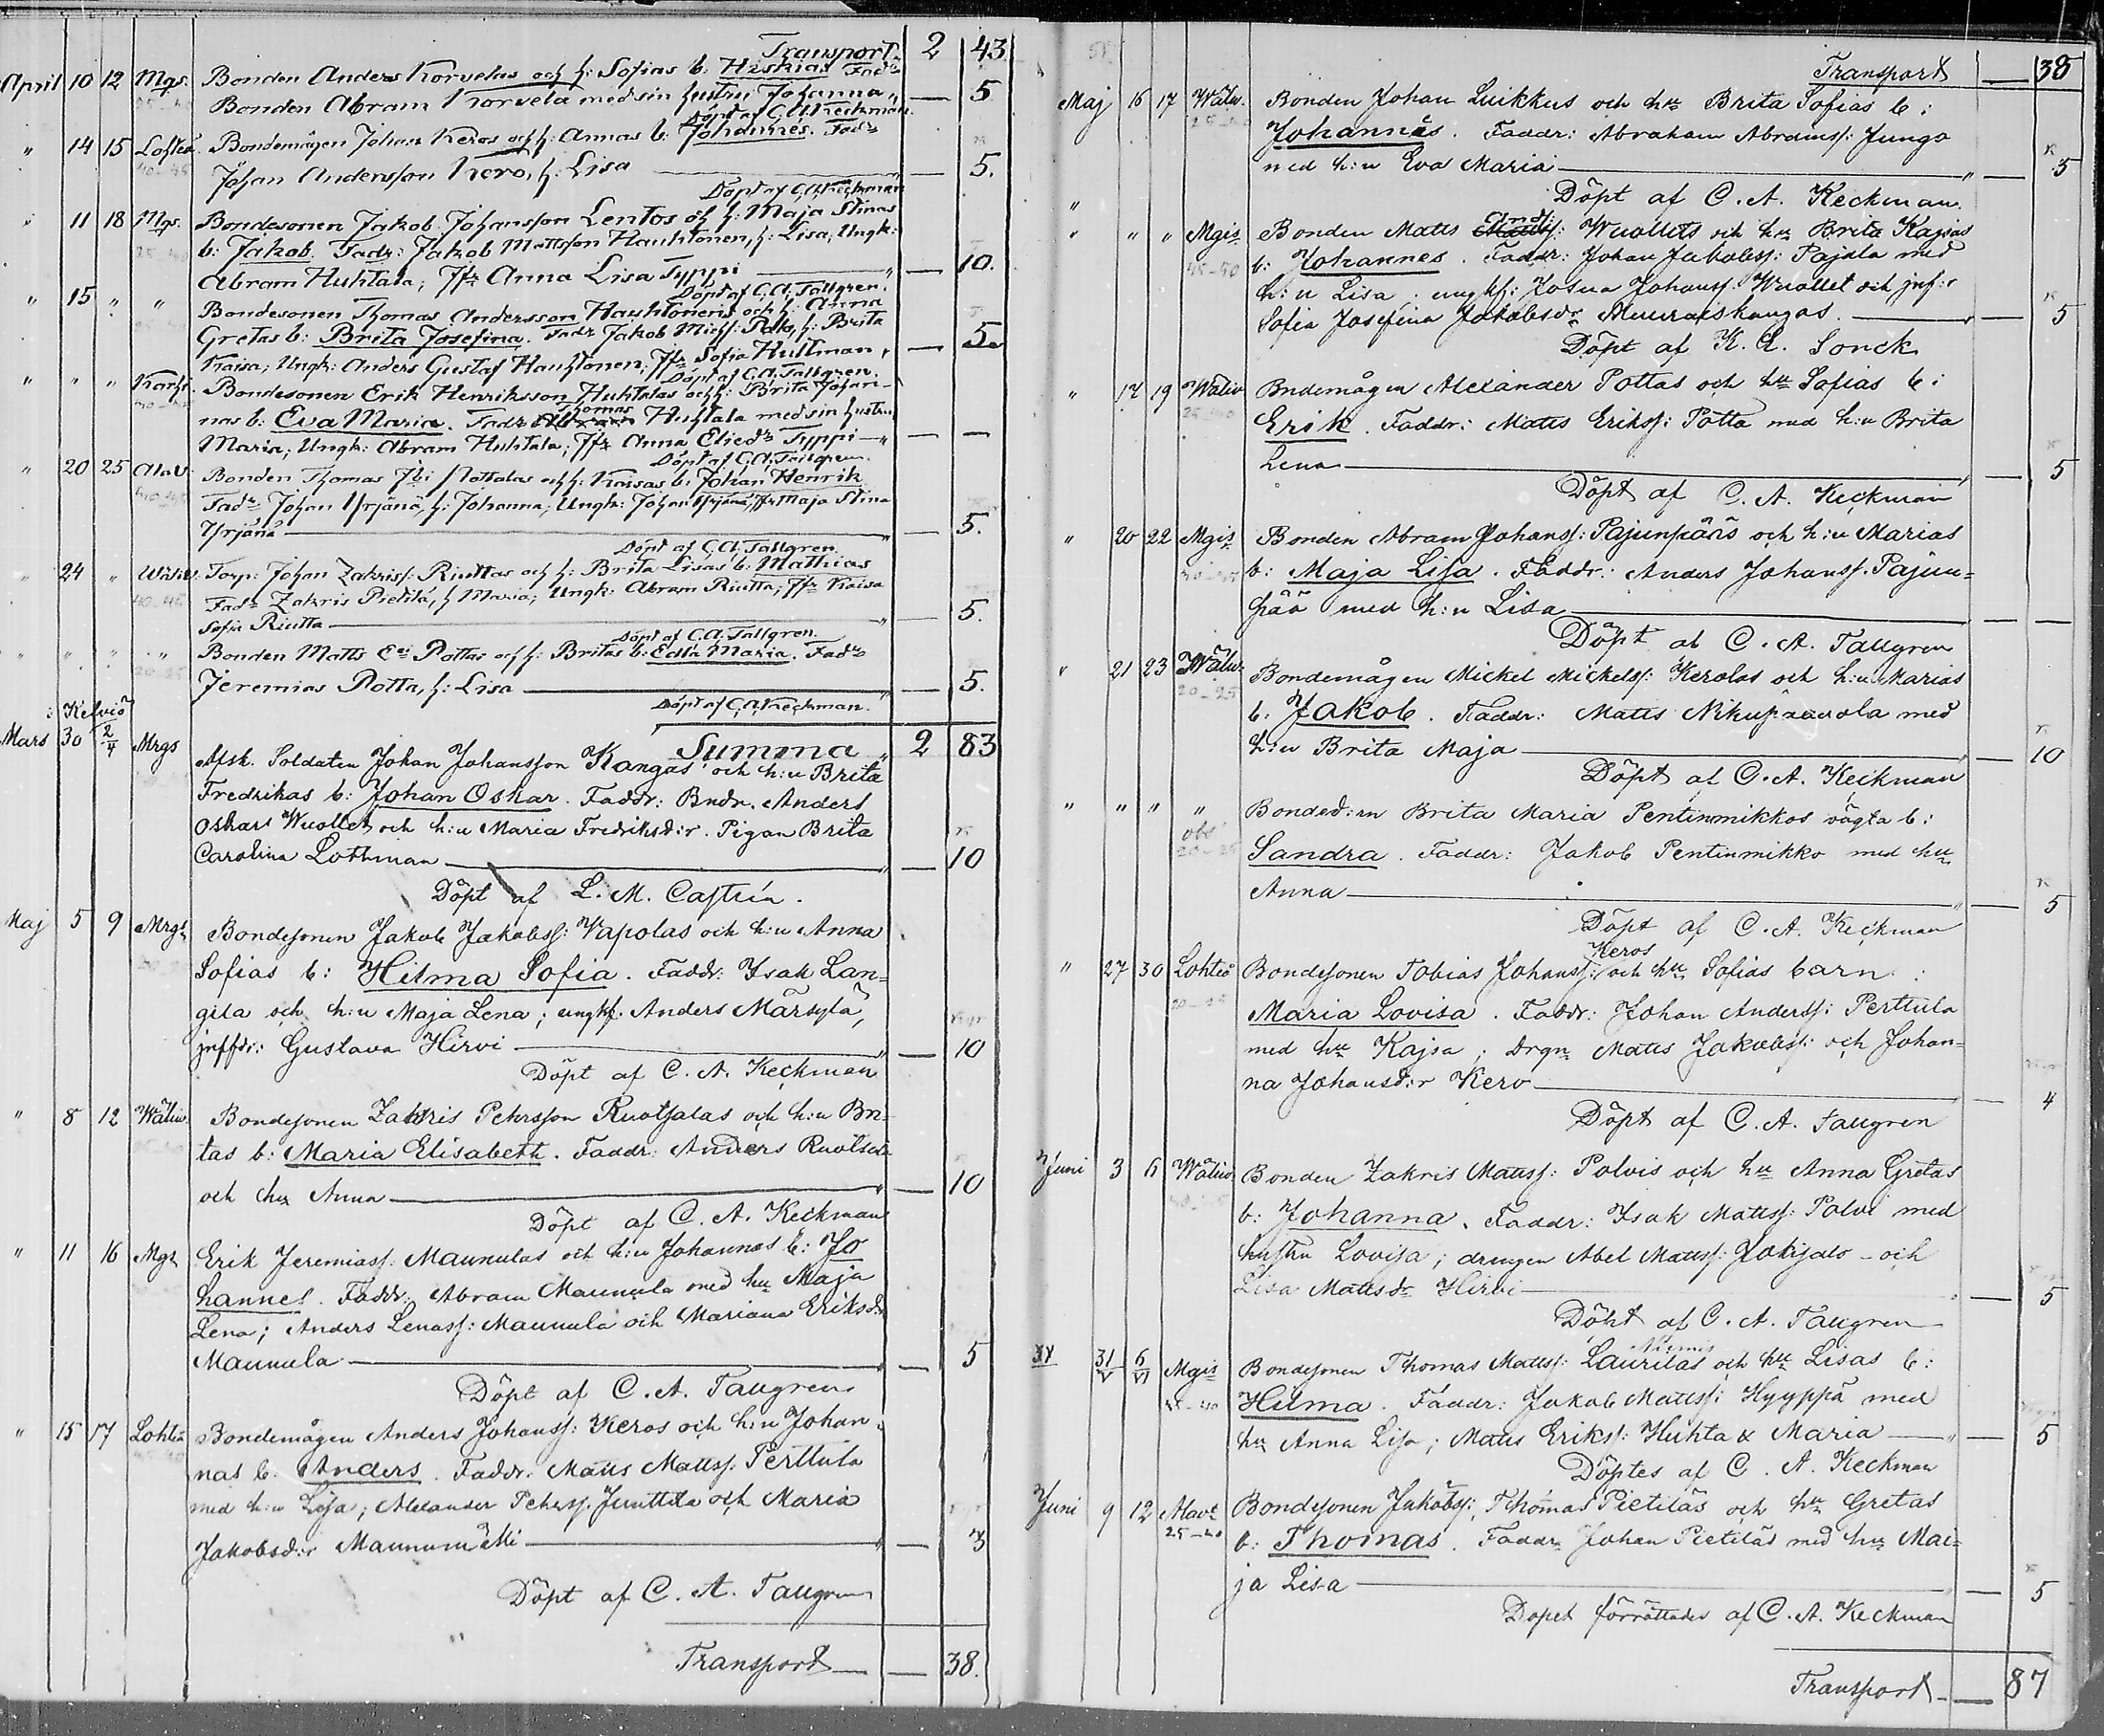 Transport 2 43
April 10 12 Mgs. Bonden Anders Korvelas och h: Sofias b: Hiskias Fadr
Bonden Abram Korvela med sin hustru Johanna „ — 5
Döpt af C.A. Keckman.
„ 14 15 Lofteå. Bondemågen Johan Keros och h: Annas b: Johannes. Fadr
Johan Andersson Kero, h: Lisa — „ — 5.
Döpt af C.A. Keckman
„ 11 18 Mgs. Bondesonen Jakob Johansson Lentos och h: Maja Stinas
b: Jakob. Fadr: Jakob Mattsson Hauhtonen, h: Lisa; Ungk:
Abram Huhtala; Jfr Anna Lisa Typpi — „ — 10.
Döpt af C.A. Tallgren.
„ 15 „ „ Bondesonen Thomas Andersson Hauhtonens och h: Anna
Gretas b: Brita Josefina. Fadr Jakob Michs: Palo, h: Brita
Kaisa; Ungk: Anders Gustaf Hauhtonen; Jfr Sofia Hultman, — 5.
Döpt af C.A. Tallgren.
„ „ „ Karhi. Bondesonen Erik Henriksson Huhtalas och h: Brita Johan-
nas b: Eva Maria. Fadr Thomas Huhtala med sin hustru
Maria; Ungk: Abram Huhtala; Jfr Anna Eliedr Typpi — „ — —
Döpt af C.A. Tallgren.
„ 20 25 Alav. Bonden Thomas Jb: Mottalas och h: Kaisas b: Johan Henrik
Fadr Johan Yrjänä, h: Johanna; Ungk: Johan Yrjänä; Jfr Maja Stina
Yrjänä — „ — 5.
Döpt af C.A. Tallgren.
„ 24 „ Wäliv. Torp: Johan Zakriss: Riuttas och h: Brita Lisas b: Mathias
Fadr Zakris Pietilä, h Maria; Ungk: Abram Riutta; Jfr Kaisa
Sofia Riutta — „ — 5.
Döpt af C.A. Tallgren.
„ „ „ „ Bonden Matts Es Pottas och h: Britas b: Edla Maria. Fadr
Jeremias Potta, h: Lisa — „ — 5.
Döpt af C.A. Keckman.
i Kelviå
Summa „ 2 83
Mars 30 2/4 Mrgs Afsk. Soldaten Johan Johansson Kangas' och h:u Brita
Fredrikas b: Johan Oskar. Faddr: Bndn. Anders
Oskar Wuollet och h:u Maria Fredriksd:r. Pigan Brita
Carolina Lothman — „ — 10
Döpt af L. M. Castrén.
Maj 5 9 Mrgs Bondesonen Jakob Jakobss: Vapolas och h:u Anna
Sofias b: Hilma Sofia. Faddr: Isak Lan-
gila och h:u Maja Lena; ungkf. Anders Märsylä,
jnffdr: Gustava Hirvi — „ — 10
Döpt af C. A. Keckman
„ 8 12 Wäliv. Bondesonen Zakris Petersson Ruotsalas och h:u Bri-
tas b: Maria Elisabeth. Faddr: Anders Ruotsala
och hu Anna — „ — 10
Döpt af C. A. Keckman
„ 11 16 Mgs Erik Jeremiass: Maunulas och h:u Johannas b: Jo
hannes. Faddr: Abram Maunula med hu Maja
Lena; Anders Lenass: Maunula och Mariana Eriksdr
Maunula — „ — 5
Döpt af C. A. Tallgren
„ 15 17 Lohteå Bondemågen Anders Johanss: Keros och h:u Johan-
nas b: Anders. Faddr. Matts Mattss: Perttula
med h:u Lisa; Alexander Peterss. Junttila och Maria
Jakobsd:r Maunumäki — „ — 3
Döpt af C. A. Tallgren
Transport — — 38.
Transport — 38
Maj 16 17 Wäliv. Bonden Johan Luikkus och hu Brita Sofias b:
Johannes. Faddr: Abraham Abramss: Junga
med h:u Eva Maria — „ — 5
Döpt af C. A. Keckman.
„
„ „ „ Mgis Bonden Matts And: Wuollets och hu Brita Kajsas
45-50 b: Johannes. Faddr: Johan Jakobss: Pajala med
h:u Lisa; ungkf: Josua Johanss: Wuollet och jnf:r
Sofia Josefina Jakobsdr Muuraiskangas. — 5
Döpt af K. L. Sonck
„ 17 19 Wäliv Bndemågen Alexander Pottas och hu Sofias b:
Erik. Faddr: Matts Erikss: Potta med h:u Brita
Lena — „ — 5
Döpt af C. A. Keckman
„ 20 22 Mgis Bonden Abram Johanss: Pajunpääs och h:u Marias
b: Maja Lisa. Faddr: Anders Johanss. Pajun-
pää med h:u Lisa — — —
Döpt af C. A. Tallgren
„ 21 23 Wäliv Bondemågen Mickel Mickelss: Kerolas och h:u Marias
20-25 b: Jakob. Faddr: Matts Nikupaavola med
h:u Brita Maja — „ — 10
Döpt af C. A. Keckman
„ „ „ „ Bonded:rn Brita Maria Pentinmikkos oägta b:
obs 20-25 Sandra. Faddr: Jakob Pentinmikko med hu
Anna — „ — 5
Döpt af C. A. Keckman
„ 27 30 Lohteå Bondesonen Tobias Johanss: Keros och hu Sofias barn:
Maria Lovisa. Faddr: Johan Anderss: Perttula
med hu Kajsa; Drgn Matts Jakobss: och Johan-
na Johansd:r Kero — — 4
Döpt af C. A. Tallgren
Juni 3 6 Wäliv Bonden Zakris Mattss: Polvis och hu Anna Gretas
b: Johanna. Faddr: Isak Mattss: Polvi med
hustru Lovisa; drengen Abel Mattss: Jokisalo och
Lisa Mattsdr Hirvi — — 5
Döpt af C. A. Tallgren
31/V 6/VI Mgis Bondesonen Thomas Mattss: Lauritas Niemis och hu Lisas b:
Hilma. Faddr: Jakob Mattss: Hyyppä med
hu Anna Lisa; Matts Erikss: Huhta & Maria — „ — 5
Döptes af C. A. Keckman
Juni 9 12 Alavt Bondesonen Jakobss: Thomas Pietiläs och hu Gretas
b: Thomas. Faddr Johan Pietiläs med hu Mai-
ja Lisa — — 5
Dopet förrättades af C. A. Keckman
Transport — — 87